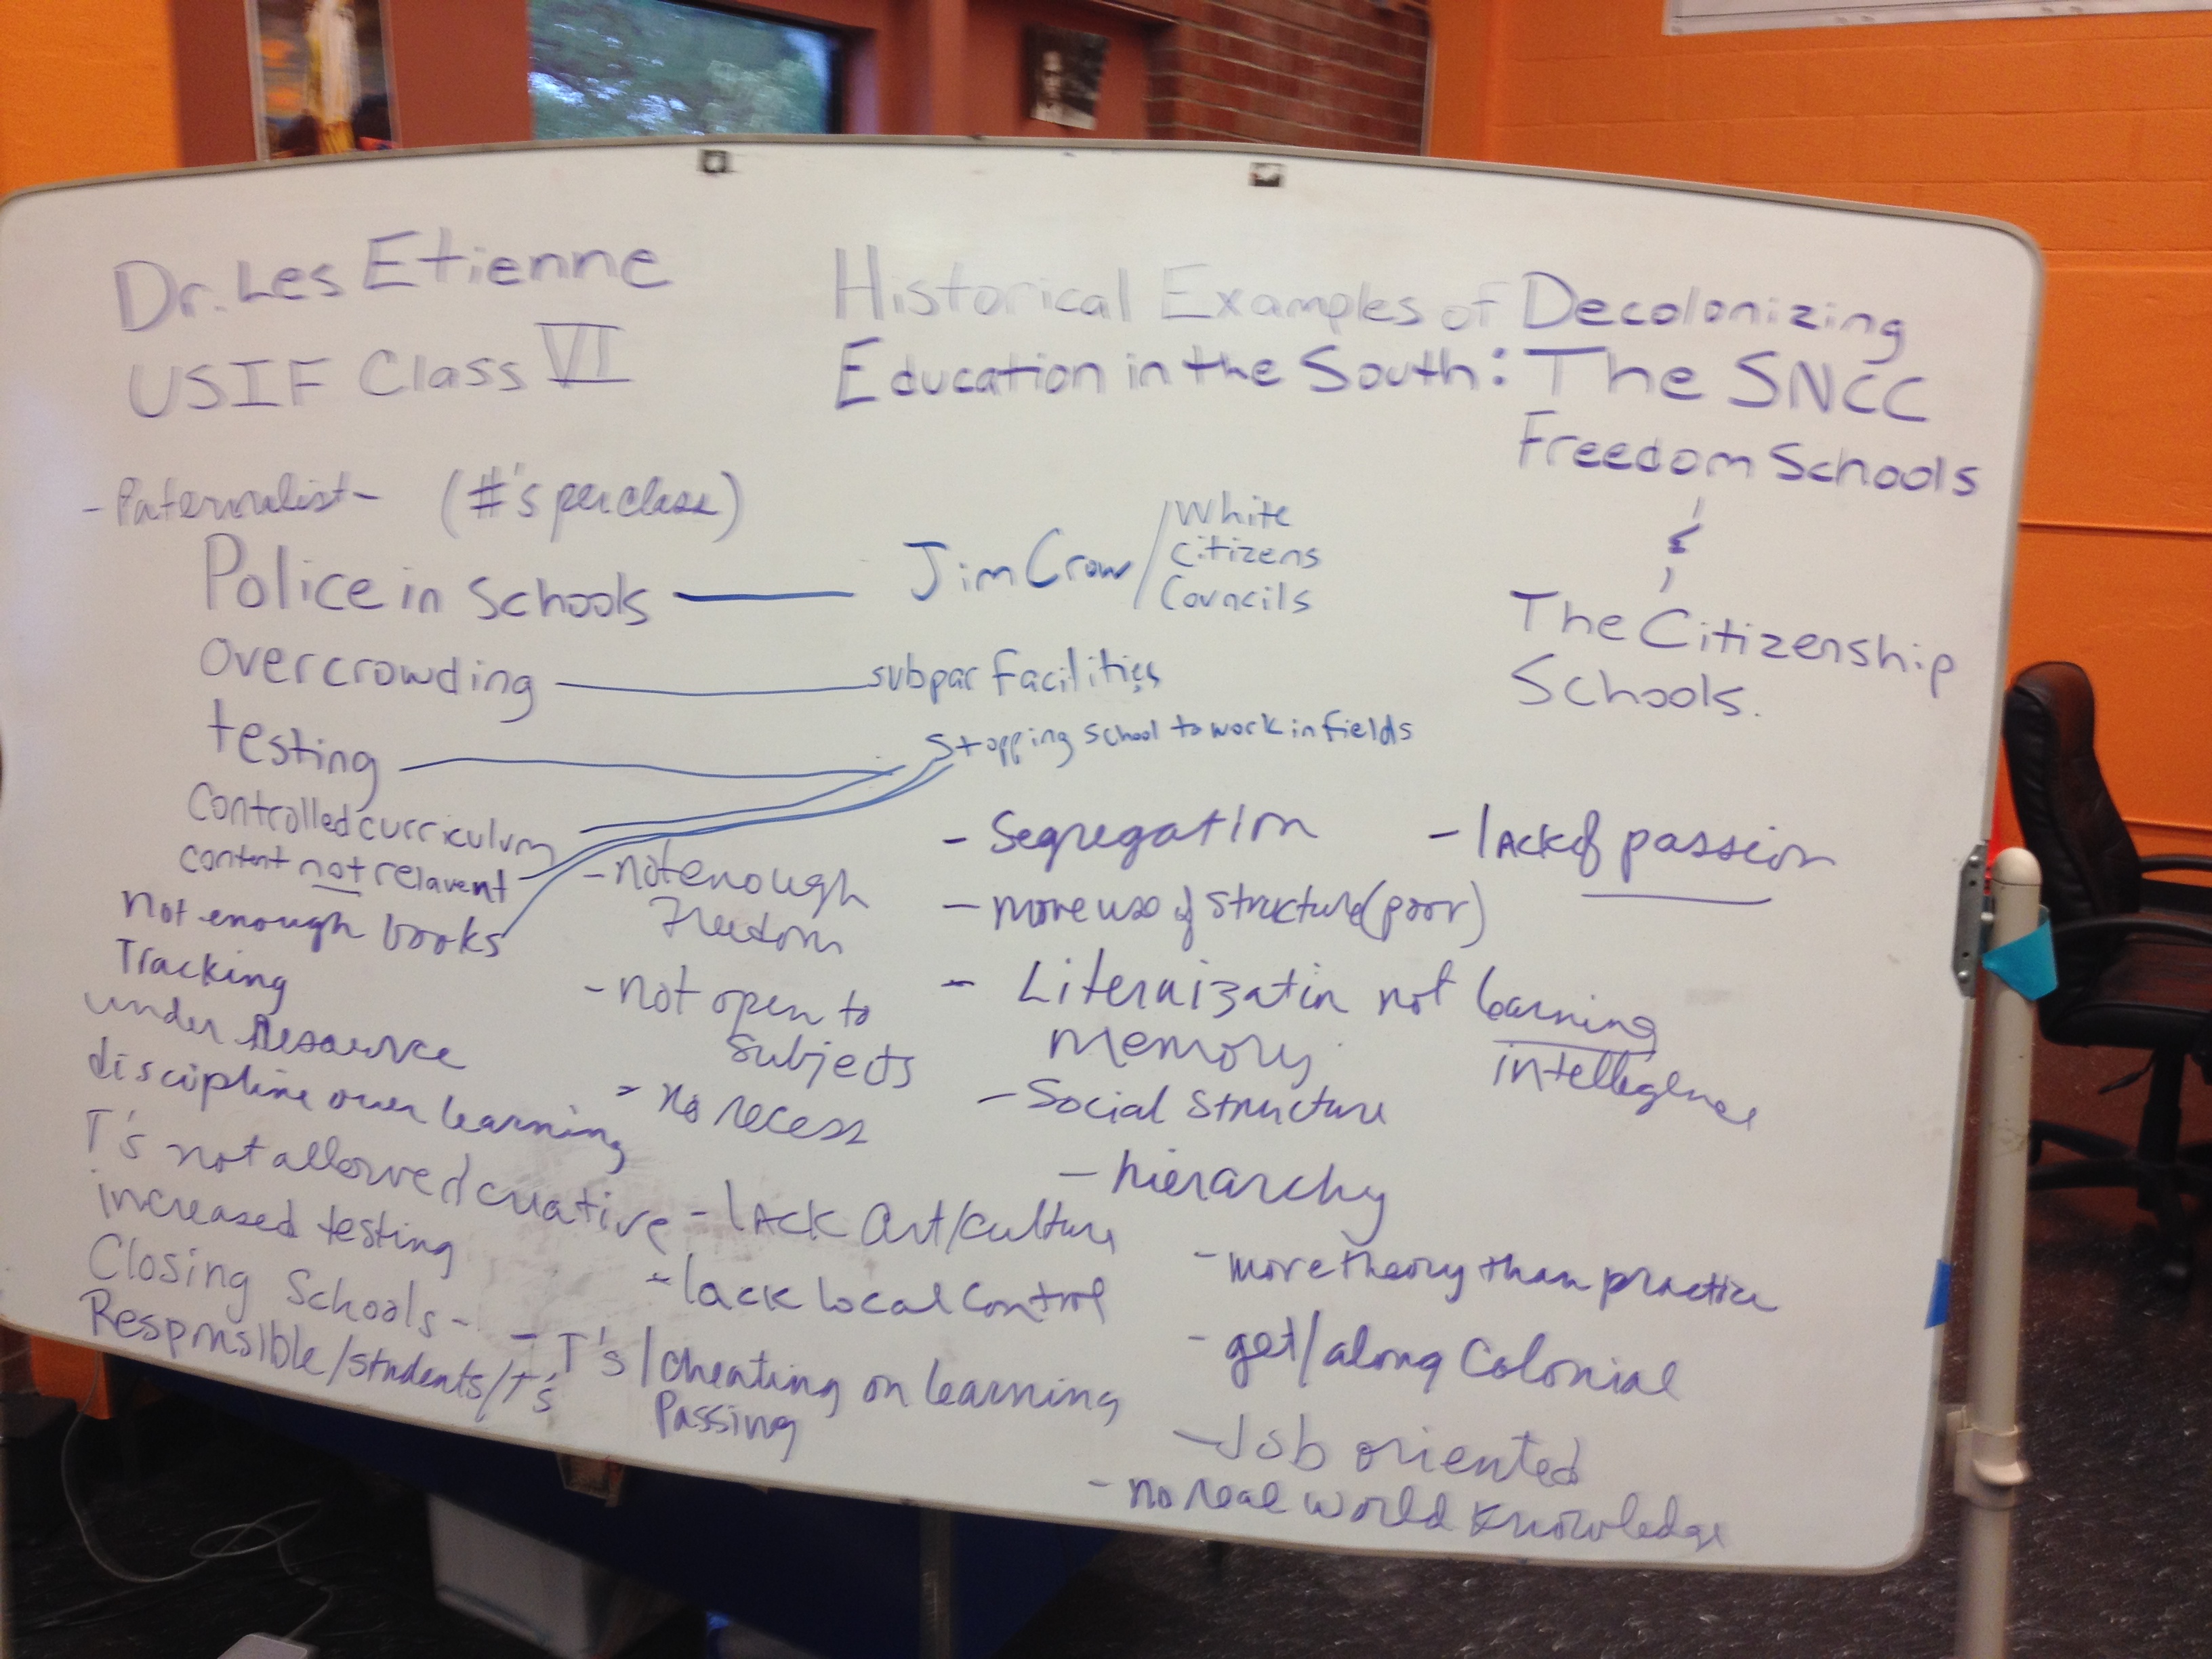 Dr. Les Etienne
USIF Class VI
Historical Examples of Decolonizing
Education in the South: The SNCC
Freedom Schools
&
The Citizenship
Schools.
- Paternalist - (#'s per class)
Police in Schools
Jim Crow / White
Citizens
Councils
overcrowding
subpar facilities
testing
Stopping school to work in fields
Controlled curriculum
content not relavent
Not enough books
Tracking
under Resource
discipline over learning
T's not allowed creative
increased testing
Closing Schools -
Responsible/students/T's
- not enough
freedom
- not open to
subjects
- no recess
- lack Art/culture
- lack local control
- T's / cheating on learning
Passing
- Segregation
- lack of passion
- more use of structure (poor)
- Literaization not learning
memory
intellegence
- Social structure
- hierarchy
- more theory than practice
- get/along Colonial
- Job oriented
- no real world knowledge